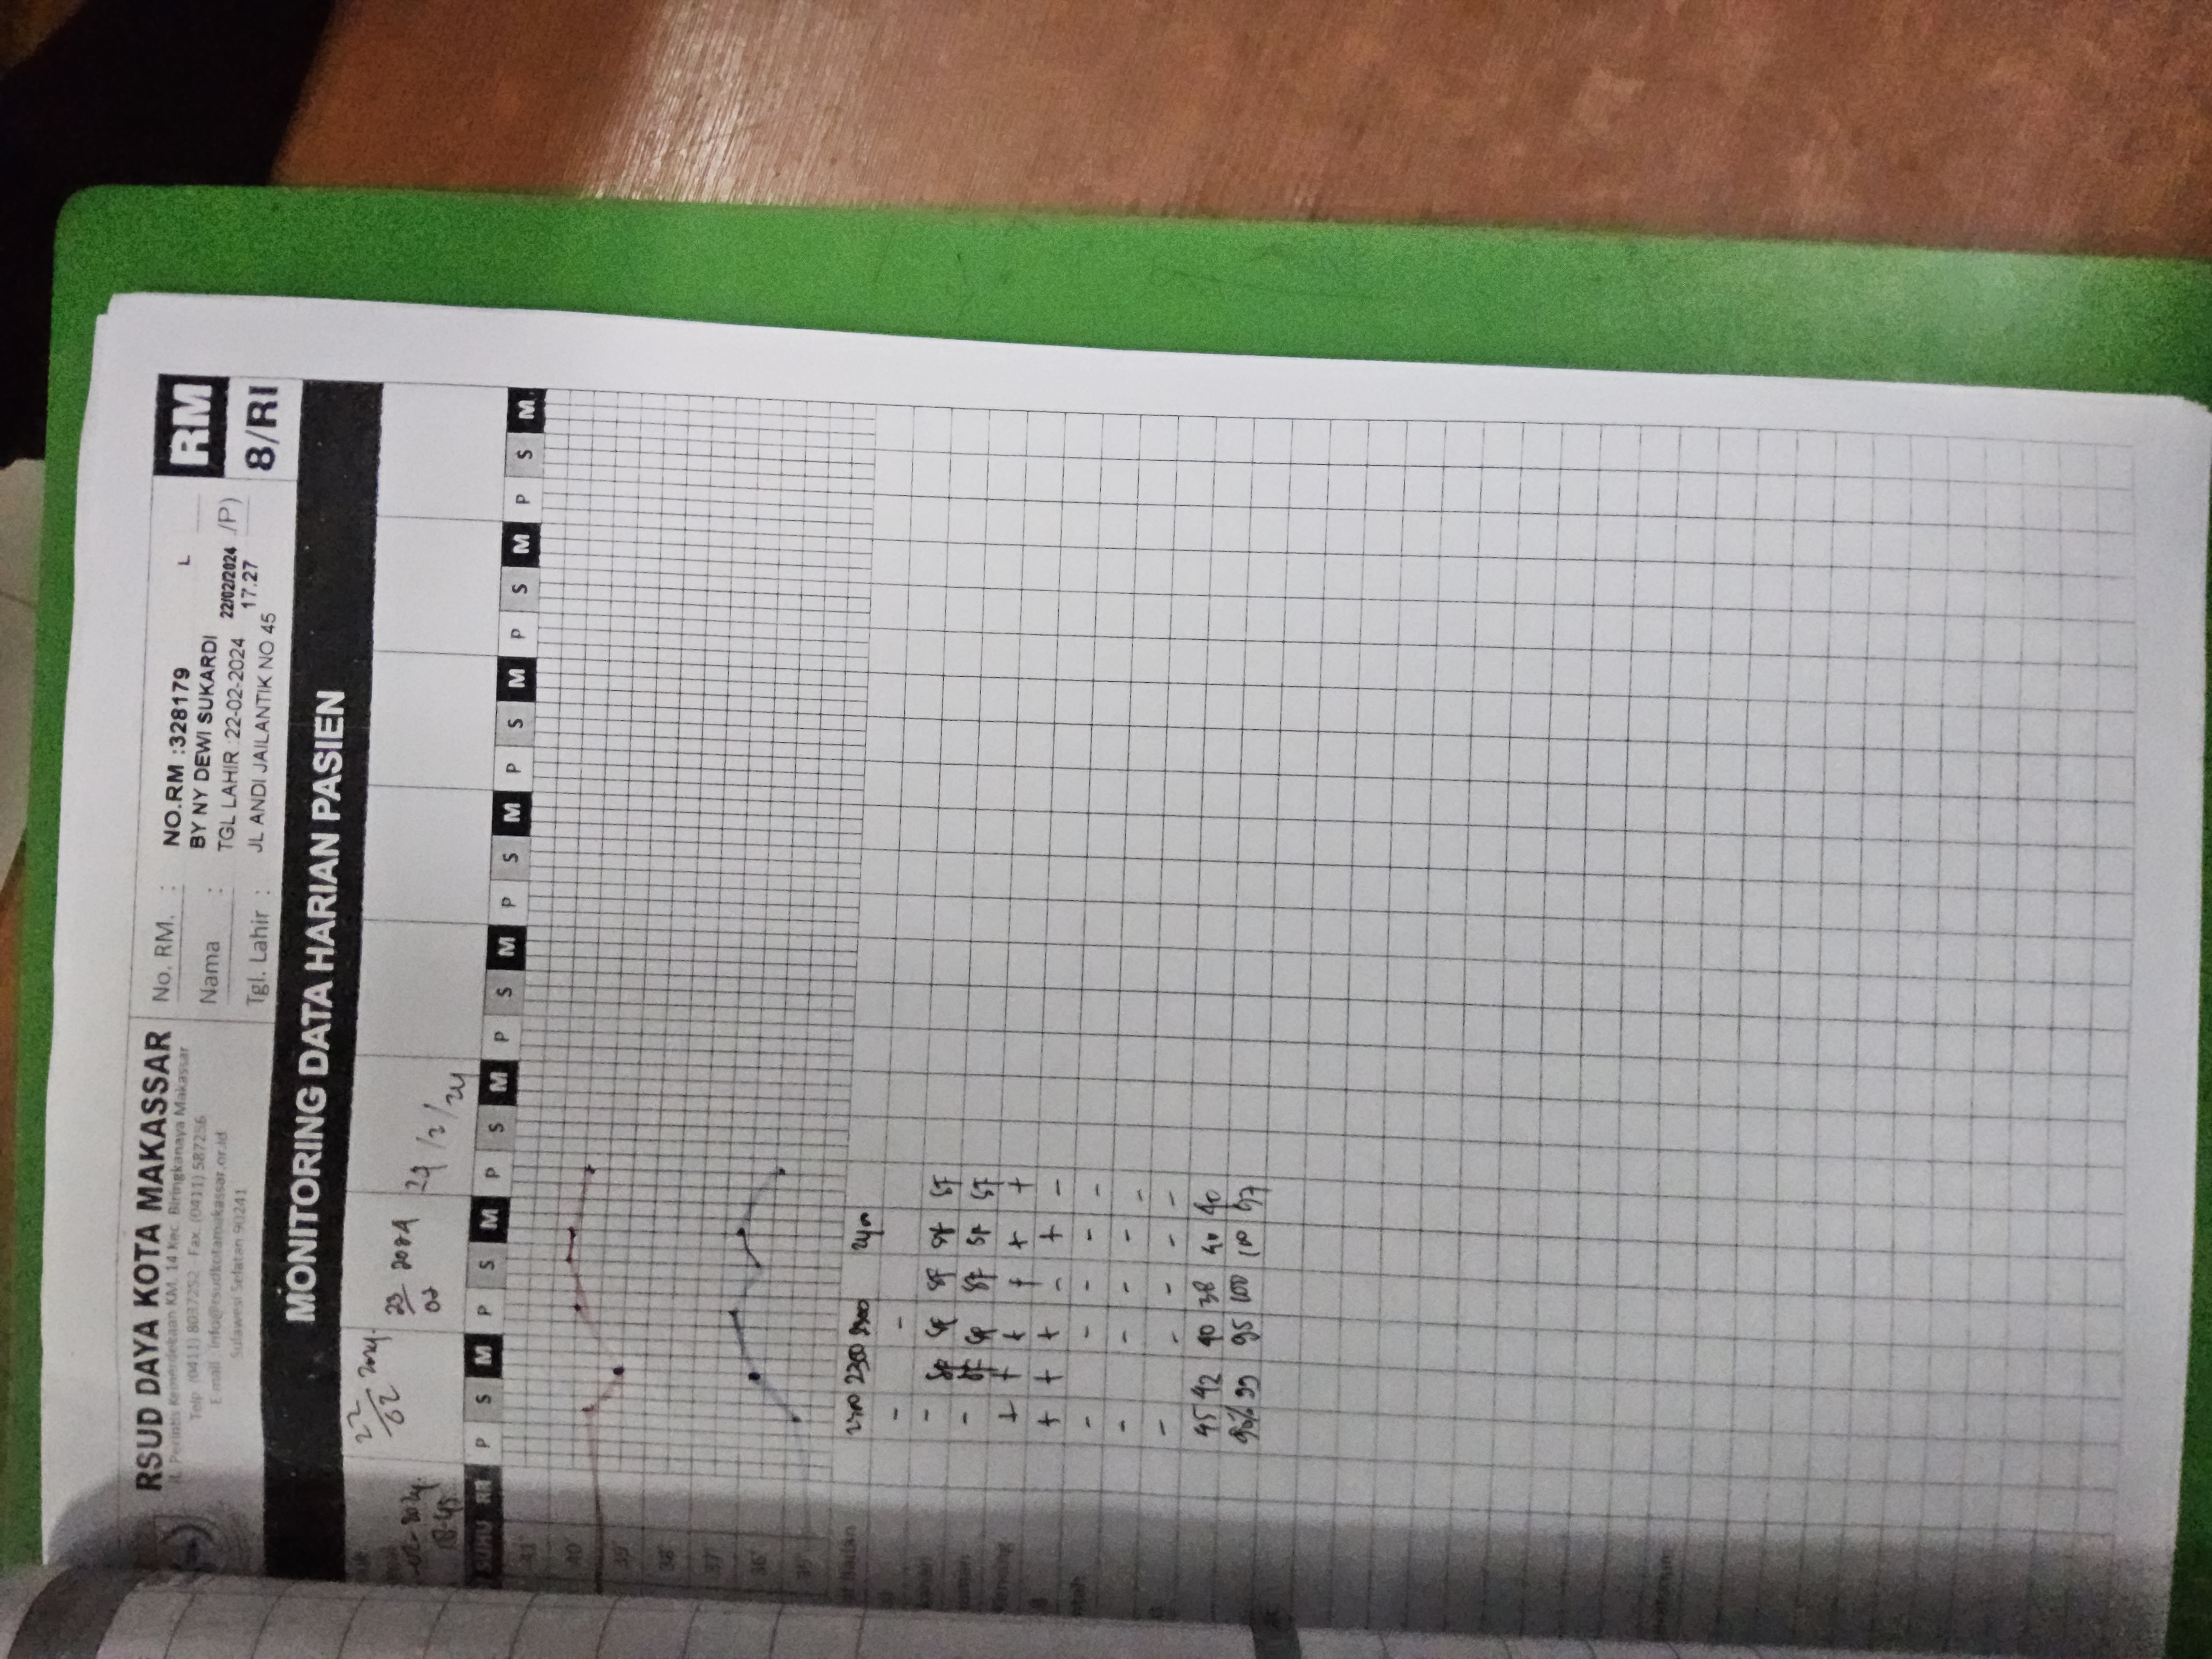 RSUD DAYA KOTA MAKASSAR
Jl. Perintis Kemerdekaan KM. 14 Kec. Biringkanaya Makassar
Telp. (0411) 8037252 - Fax. (0411) 587256
E-mail : info@rsudkotamakassar.or.id
Sulawesi Selatan 90241
No. RM. : NO.RM :328179 L
BY NY DEWI SUKARDI
Nama :
TGL LAHIR :22-02-2024 22/02/2024 /P)
17.27
Tgl. Lahir : JL ANDI JAILANTIK NO 45
RM
8/RI
MONITORING DATA HARIAN PASIEN
22/02 2024.
23/02 2024
/2/24
18-45
SUHU RR P S M P S M P S M P S M P S M P S M P S M P S M
41°
40°
39°
38°
37°
36°
35°
2300 2300
- -
- SF SF SF SF SF
- SF SF SF SF SF
+ + + + + +
+ + + - + -
- - - - -
- - - - -
- - - - -
45 42 40 38 40 40
99 95 100 100 97